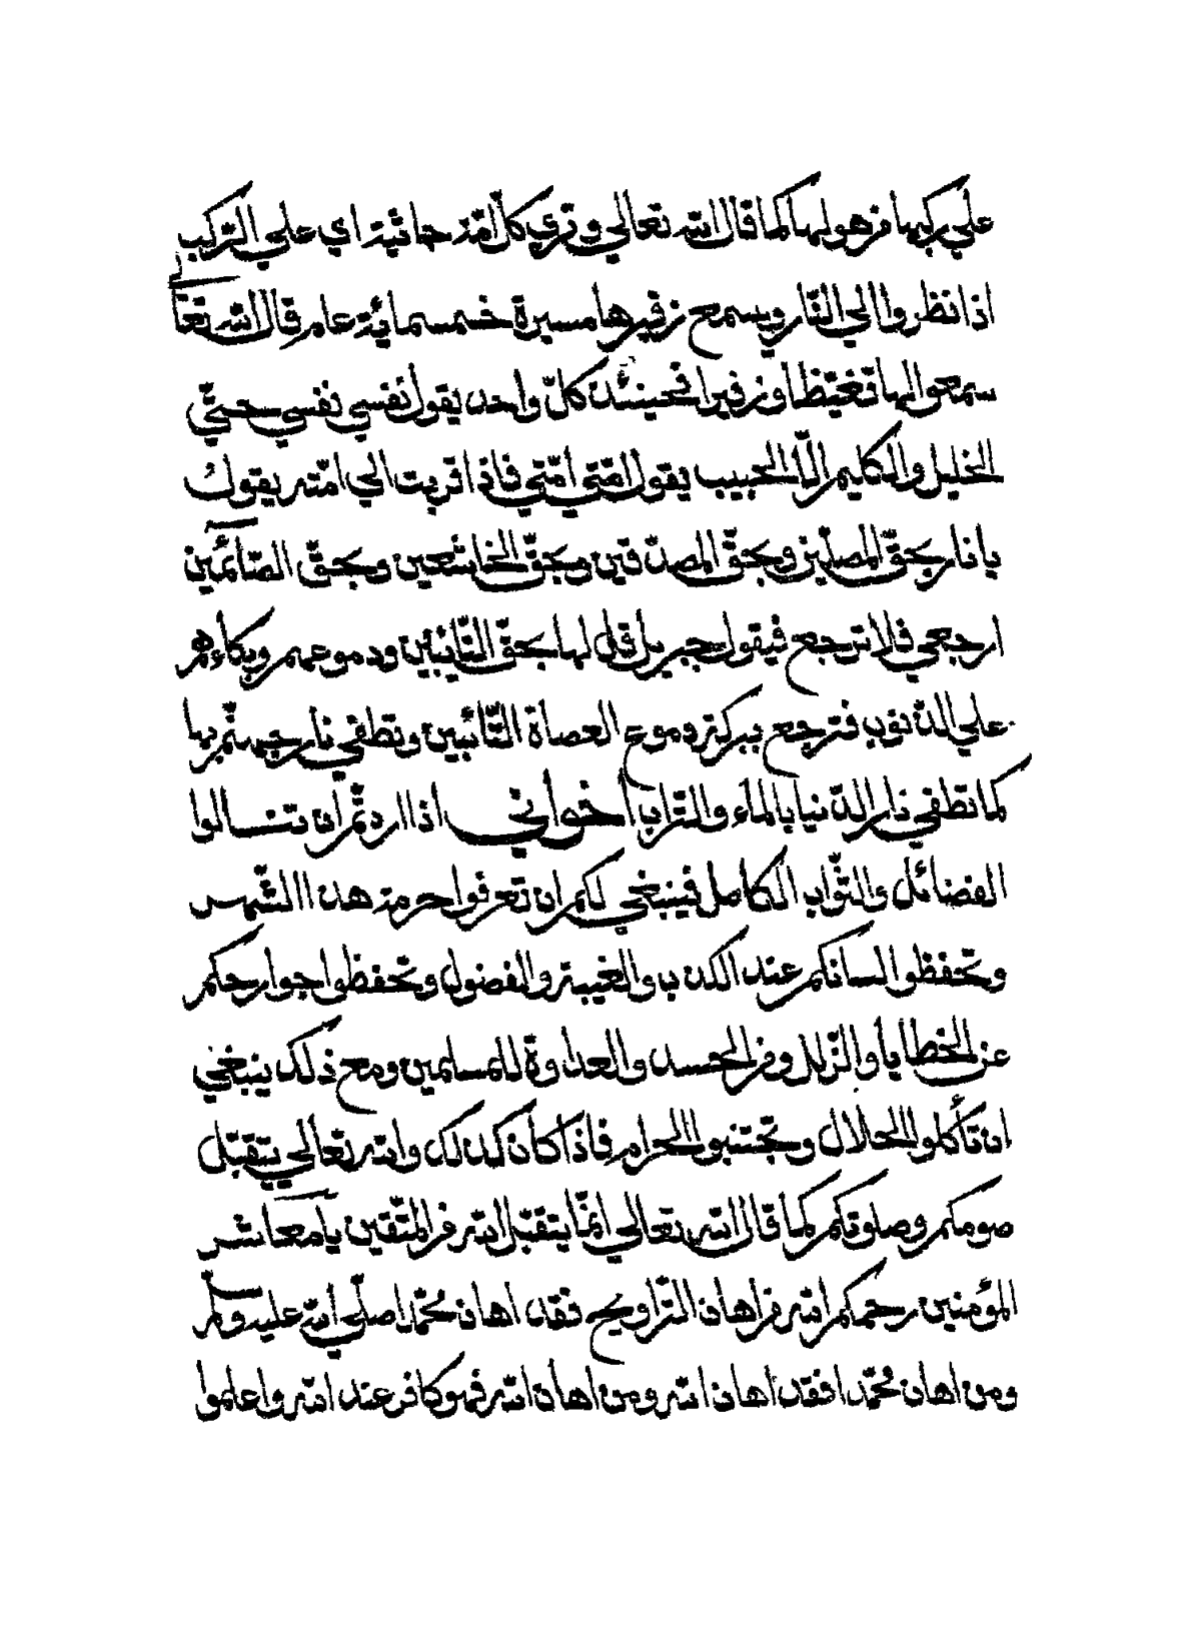 علي ركبها من هولها كما قال الله تعالي وتري كلّ امّة جاثية اي علي الركب
اذا نظروا الي النّار ويسمع زفيرها مسيرة خمسمائة عام قال الله تعالي
سمعوا لها تغيّظا وزفيرا فحينئذ كلّ واحد يقول نفسي نفسي حتّي
الخليل والكليم الّا الحبيب يقول امّتي امّتي فاذا قربت الي امّته يقول
يا نار بحقّ المصلّين وبحقّ المصدّقين وبحقّ الخاشعين وبحقّ الصّائمين
ارجعي فلا ترجع فيقول جبريل قل لها بحقّ التّائبين ودموعهم وبكاءهم
علي الذنوب فترجع ببركة دموع العصاة التّائبين وتطفي نار جهنّم بها
كما تطفي نار الدّنيا بالماء والتّراب اخواني اذا اردتّم ان تنسالوا
الفضائل والثّواب الكامل فينبغي لكم ان تعرفوا حرمة هذا الشّهر
وتحفظوا السانكم عند الكذب والغيبة والفضول وتحفظوا جوارحكم
عن الخطايا والزّلل ومن الحسد والعداوة للمسلمين ومع ذلك ينبغي
ان تأكلوا الحلال وتجتنبوا الحرام فاذا كان كذلك والله تعالي يتقبّل
صومكم وصلوتكم كما قال الله تعالي انّما يتقبّل الله من المتّقين يا معاشر
المؤمنين رحمكم الله من اهان التّراويح فقد اهان محمّدا صلّي الله عليه وسلّم
ومن اهان محمّدا فقد اهان الله ومن اهان الله فهو كافر عند الله واعلموا